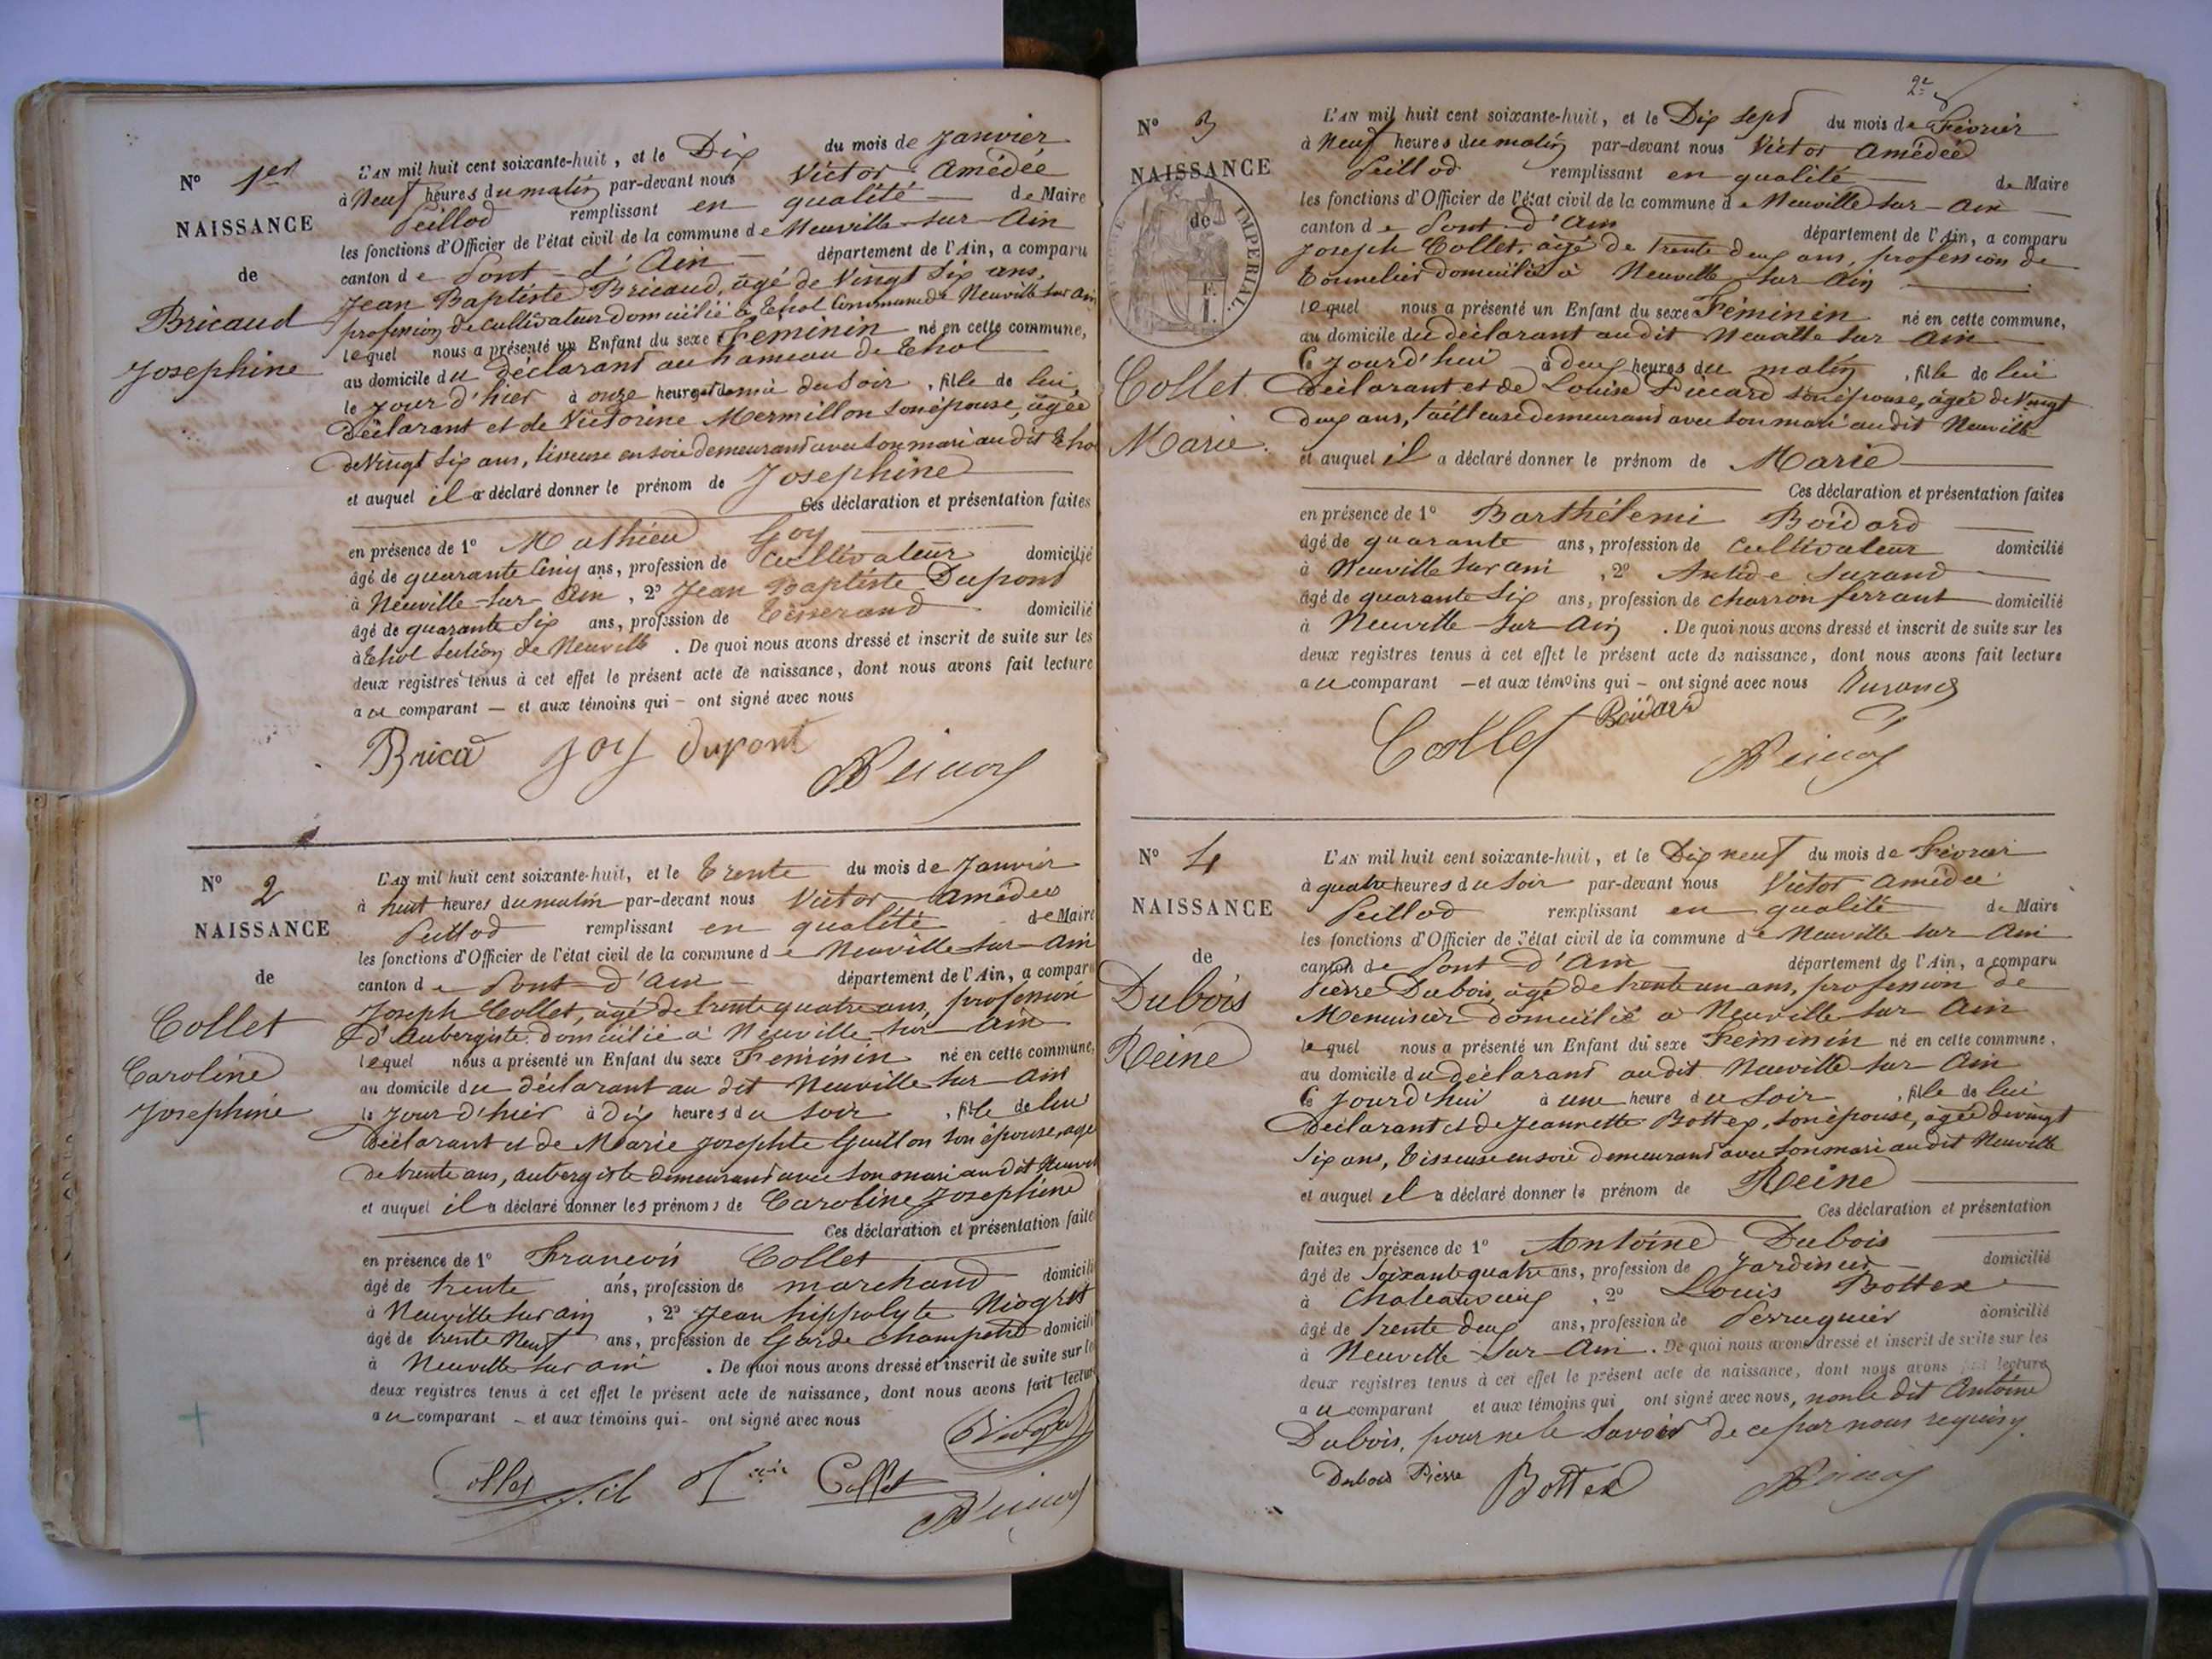 N° 1er
NAISSANCE
de
Bricaud
Josephine
L'AN mil huit cent soixante-huit, et le Dix du mois de Janvier
à Neuf heures du matin par-devant nous Victor Amédée
Peillod remplissant en qualité de Maire
les fonctions d'Officier de l'état civil de la commune de Neuville-sur-Ain
canton de Pont-d'Ain département de l'Ain, a comparu
Jean Baptiste Bricaud, âgé de Vingt Six ans,
profession de cultivateur domicilié à Thol Commune de Neuville sur Ain
lequel nous a présenté un Enfant du sexe Féminin né en cette commune,
au domicile du Déclarant au hameau de Thol
le Jour d'hier à onze heures et demie du Soir, fille de lui
Déclarant et de Victorine Mermillon son épouse, âgée
de Vingt Six ans, tisseuse en soie demeurant avec son mari au dit Thol
et auquel il a déclaré donner le prénom de Josephine
Ces déclaration et présentation faites
en présence de 1° Mathieu Goy
âgé de quarante Cinq ans, profession de Cultivateur domicilié
à Neuville-sur-Ain, 2° Jean Baptiste Dupont
âgé de quarante Six ans, profession de Tisserand domicilié
à Thol section de Neuville. De quoi nous avons dressé et inscrit de suite sur les
deux registres tenus à cet effet le présent acte de naissance, dont nous avons fait lecture
au comparant et aux témoins qui ont signé avec nous
Brica Joy Dupont
N° 2
NAISSANCE
de
Collet
Caroline
Josephine
L'AN mil huit cent soixante-huit, et le Trente du mois de Janvier
à huit heures du matin par-devant nous Victor Amédée
Peillod remplissant en qualité de Maire
les fonctions d'Officier de l'état civil de la commune de Neuville sur Ain
canton de Pont-d'Ain département de l'Ain, a comparu
Joseph Collet, âgé de trente quatre ans, profession
d'Aubergiste domicilié à Neuville sur Ain
lequel nous a présenté un Enfant du sexe Feminin né en cette commune,
au domicile du déclarant au dit Neuville sur Ain
le Jour d'hier à Dix heures du Soir, fille de lui
Déclarant et de Marie Josephte Guillon son épouse, age
de trente ans, aubergiste demeurant avec son mari au dit Neuvil
et auquel il a déclaré donner les prénoms de Caroline Josephine
Ces déclaration et présentation faite
en présence de 1° Francois Collet
âgé de trente ans, profession de marchand domicili
à Neuville sur ain, 2° Jean hippolyte Niogret
âgé de trente Neuf ans, profession de Garde champetre domicili
à Neuville sur ain. De quoi nous avons dressé et inscrit de suite sur le
deux registres tenus à cet effet le présent acte de naissance, dont nous avons fait lectur
au comparant et aux témoins qui ont signé avec nous
Collet Collet
2e
N° 3
NAISSANCE
de
IMPERIAL.
Collet
Marie.
L'AN mil huit cent soixante-huit, et le Dix Sept du mois de Février
à Neuf heures du matin par-devant nous Victor Amédée
Peillod remplissant en qualité de Maire
les fonctions d'Officier de l'état civil de la commune de Neuville sur-Ain
canton de Pont-d'Ain département de l'Ain, a comparu
Joseph Collet, âgé de trente deux ans, profession de
Tonnelier domicilié à Neuville sur Ain
lequel nous a présenté un Enfant du sexe Féminin né en cette commune,
au domicile du déclarant au dit Neuville sur Ain
le Jourd'hui à deux heures du matin, fille de lui
Déclarant et de Louise Piccard son épouse, agée de Vingt
deux ans, tailleuse demeurant avec son mari au dit Neuville
et auquel il a déclaré donner le prénom de Marie
Ces déclaration et présentation faites
en présence de 1° Barthélemi Boidard
âgé de quarante ans, profession de Cultivateur domicilié
à Neuville sur ain, 2° Antide Durand
âgé de quarante Six ans, profession de charron ferrant domicilié
à Neuville sur Ain. De quoi nous avons dressé et inscrit de suite sur les
deux registres tenus à cet effet le présent acte de naissance, dont nous avons fait lecture
au comparant et aux témoins qui ont signé avec nous Durand
Collet Boidard
N° 4
NAISSANCE
de
Dubois
Reine
L'AN mil huit cent soixante-huit, et le Dix neuf du mois de Fevrier
à quatre heures du Soir par-devant nous Victor Amédée
Peillod remplissant en qualité de Maire
les fonctions d'Officier de l'état civil de la commune de Neuville sur Ain
canton de Pont-d'Ain département de l'Ain, a comparu
Pierre Dubois, âgé de trente un ans, profession de
Menuisier domicilié à Neuville sur Ain
lequel nous a présenté un Enfant du sexe Féminin né en cette commune,
au domicile du déclarant au dit Neuville sur-Ain
le Jourd'hui à une heure du Soir, fille de lui
Déclarant et de Jeannette Bottex, son épouse, agée de vingt
Six ans, Tisseuse en soie demeurant avec son mari au dit Neuville
et auquel il a déclaré donner le prénom de Reine
Ces déclaration et présentation
faites en présence de 1° Antoine Dubois
âgé de Soixante quatre ans, profession de Jardinier domicilié
à Chateauvieux, 2° Louis Bottex
âgé de trente deux ans, profession de Perruquier domicilié
à Neuville sur-Ain. De quoi nous avons dressé et inscrit de suite sur les
deux registres tenus à cet effet le présent acte de naissance, dont nous avons fait lecture
au comparant et aux témoins qui ont signé avec nous, non le dit Antoine
Dubois, pour ne le Savoir de ce par nous requis.
Dubois Pierre Bottex